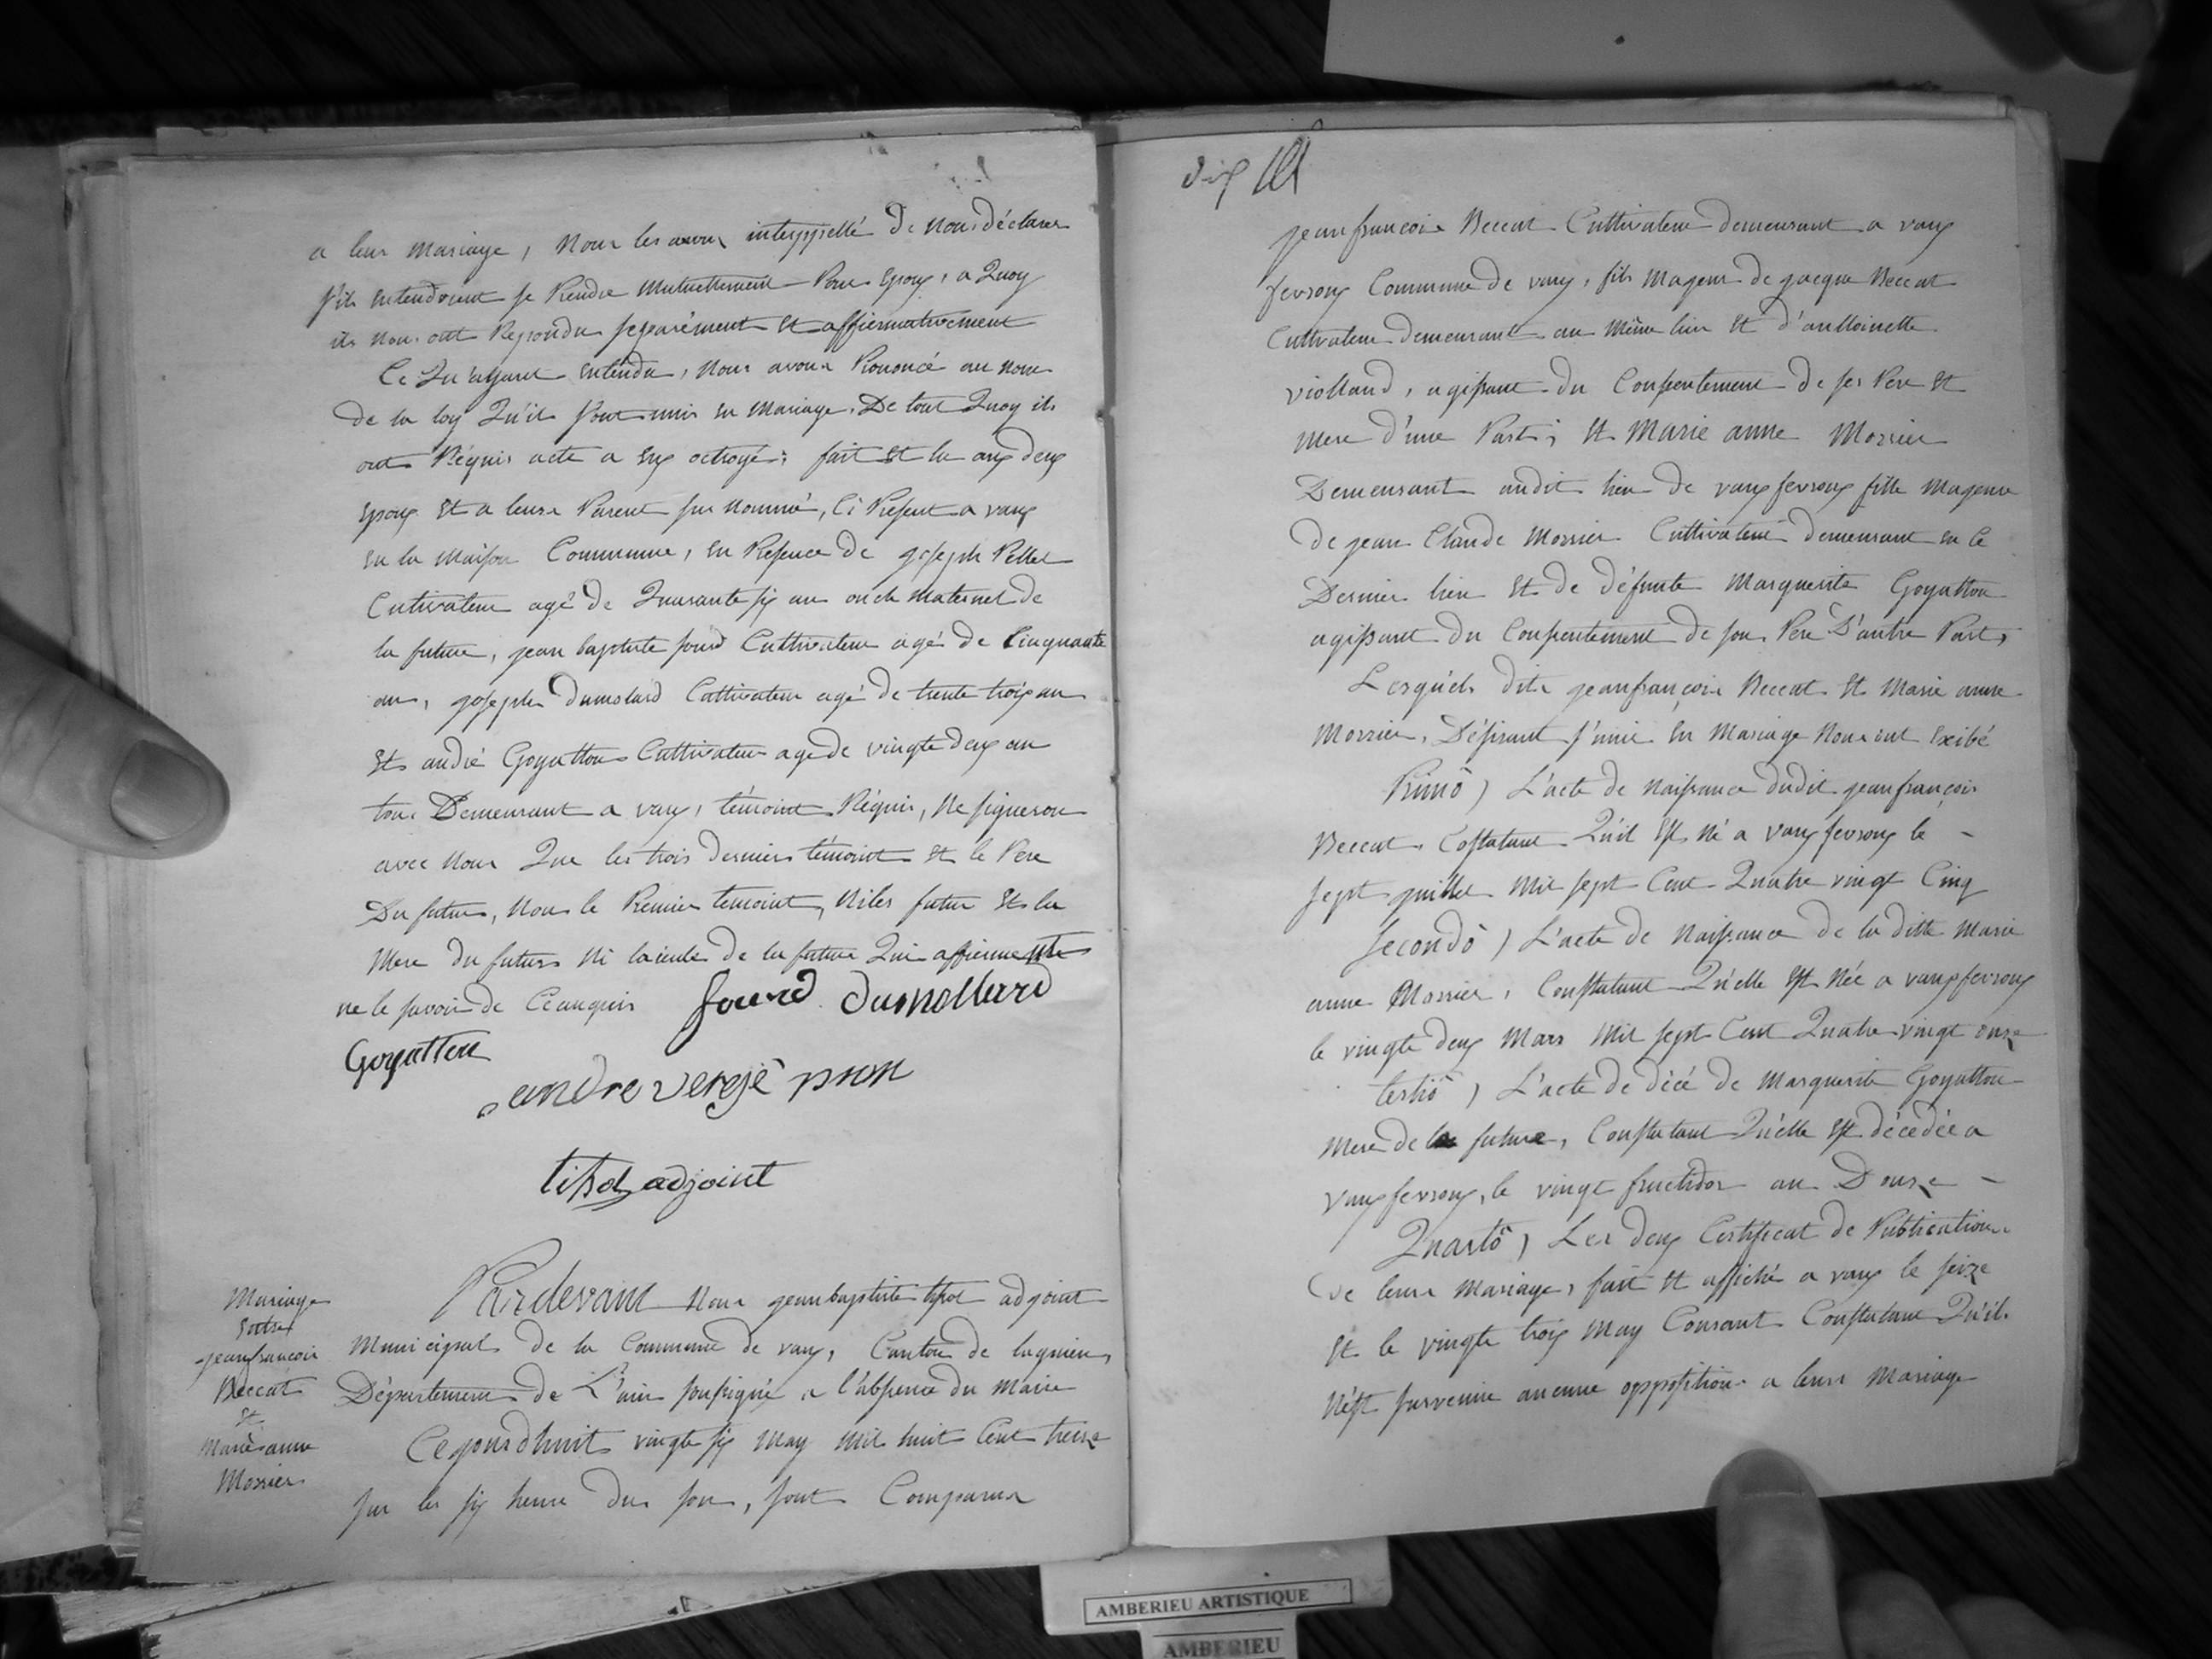 a leur mariage, Nour les avour interppellé De Nous déclarer
s'ils entendoient se Prendre Mutuellement Pour Epoux, a Quoy
ils nous ont Repondu separément Et affirmativement
Ce Qu'ayant entendu, Nous avons Prononcé au nom
De la loy Qu'ils sont unis en mariage. De tout Quoy ils
ont Réquis acte a Eux octroyé; fait Et lu aux deux
Epoux Et a leurs Parent sus nommé, Ci Present a vaux
en la maison Commune, en Presence De joseph Pellet
Cutivateur agé De Quarante six ans oncle maternel de
la future, jean baptiste Cultivateur agé de Cinquante
ans, joseph Dumolard Cultivateur agé de trente trois ans
Et andré Goyatton Cultivateur agé de vingte deux an
tous Demeurant a vaux, témoint Réquis, Ne signeron
avec Nous Que les trois derniers témoint Et le Pere
Du futur, Non le Premier temoint, Ni les futur Et la
mere du futur Ni laieule de la future Qui affirment
ne le savoir de Ce anquis Dumollard
Goyatton
andre vergé
adjoint
Mariage
Entre
jean françois
Beccat
Et
Marie anne
Morrier
Pardevant Nous jean baptiste adjoint
Municipal de la Commune de vaux, Canton de lagnieu,
Département De L'ain soussigné a l'absence du Maire
Cejourdhuit vingte six May Mil huit Cent treize
sur les six heure du soir, sont Comparus
dix
jean françois Beccat Cultivateur demeurant a vaux
fevroux Commune de vaux, fils Majeur de jacque Beccat
Cultivateur demeurant au même lieu Et d'anttoinette
violland, agissant du Consentement De ses Pere Et
Mere d'une Part; Et Marie anne Morrier
Demeurant audit lieu de vaux fevroux fille Majeure
De jean Claude Morrier Cultivateur demeurant en le
Dernier lieu Et de défunte Marguerite Goyatton
agissant du Consentement de son Pere D'autre Part,
Lesquels dits jean françois Beccat Et Marie anne
Morrier, Désirant s'unir en Mariage Nous ont Exibé
Primô) L'acte de Naissance dudit jean françois
Beccat Costatant Qu'il Est Né a vaux fevroux le -
sept juillet Mil sept Cent Quatre vingt Cinq
Secondô) L'acte de Naissance de la ditte Marie
anne Morrier, Constatant Qu'elle Est Née a vaux fevroux
le vingte deux Mars Mil sept Cent Quatre vingt onze
tertiô) L'acte de décé de Marguerite Goyatton
Mere de la future, Constatant Qu'elle Est décédée a
vaux fevroux, le vingt fructidor an Douze -
Quartô) Les deux Certificat de Publication
De leur Mariage, fait Et affiché a vaux le seize
Et le vingte trois May Courant Constatant Qu'il
N'est survenue aucune oppposition a leur Mariage
AMBERIEU ARTISTIQUE
AMBERIEU